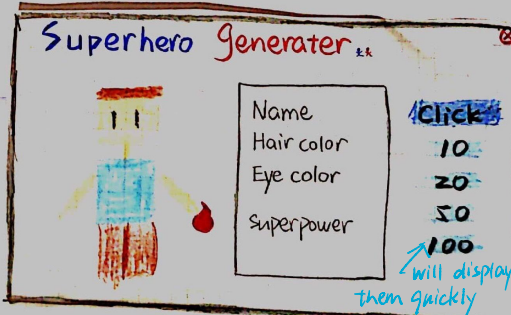 Superhero Generater..
Name
Hair color
Eye color
Superpower
Click
10
20
50
100
will display
them quickly